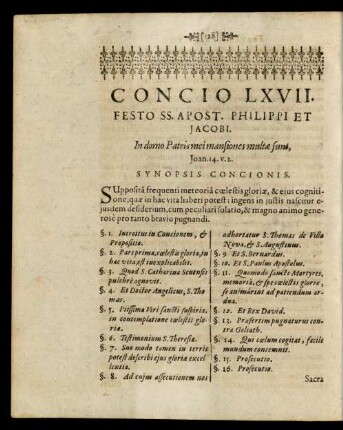 [128]
CONCIO LXVII.
FESTO SS. APOST. PHILIPPI ET
JACOBI.
In domo Patris mei mansiones multæ sunt,
Joan. 14. v. 2.
SYNOPSIS CONCIONIS.
SUppositâ frequenti meteoriâ cœlestis gloriæ, & ejus cogniti-
one, quæ in hac vita haberi potest: ingens in justis nascitur e-
jusdem desiderium, cum peculiari solatio, & magno animo gene-
rosè pro tanto bravio pugnandi.
§. 1. Introitus in Concionem, &
Propositio.
§. 2. Pars prima, cœlestis gloria, in
hac vita, est inexplicabilis.
§. 3. Quod S. Catharina Senensis
pulchrè agnovit.
§. 4. Et Doctor Angelicus, S. Tho
mas.
§. 5. Piissima Viri sancti suspiria,
in contemplatione cœlestis glo-
riæ.
§. 6. Testimonium S. Theresiæ.
§. 7. Suo modo tamen in terris
potest describi ejus gloriæ excel
lentia.
§. 8. Ad cujus assecutionem nos
adhortatur S. Thomas de Villa
Nova, & S. Augustinus.
§. 9. Et S. Bernardus.
§. 10. Et S. Paulus Apostolus.
§. 11. Quomodo sancti Martyres,
memoriâ, & spe cœlestis gloriæ,
se animârint ad patiendum ar-
dua.
§. 12. Et Rex David.
§. 13. Præsertim pugnaturus con-
tra Goliath.
§. 14. Qui cœlum cogitat, facilè
mundum contemnit.
§. 15. Prosecutio.
§. 16. Prosecutio.
Sacra